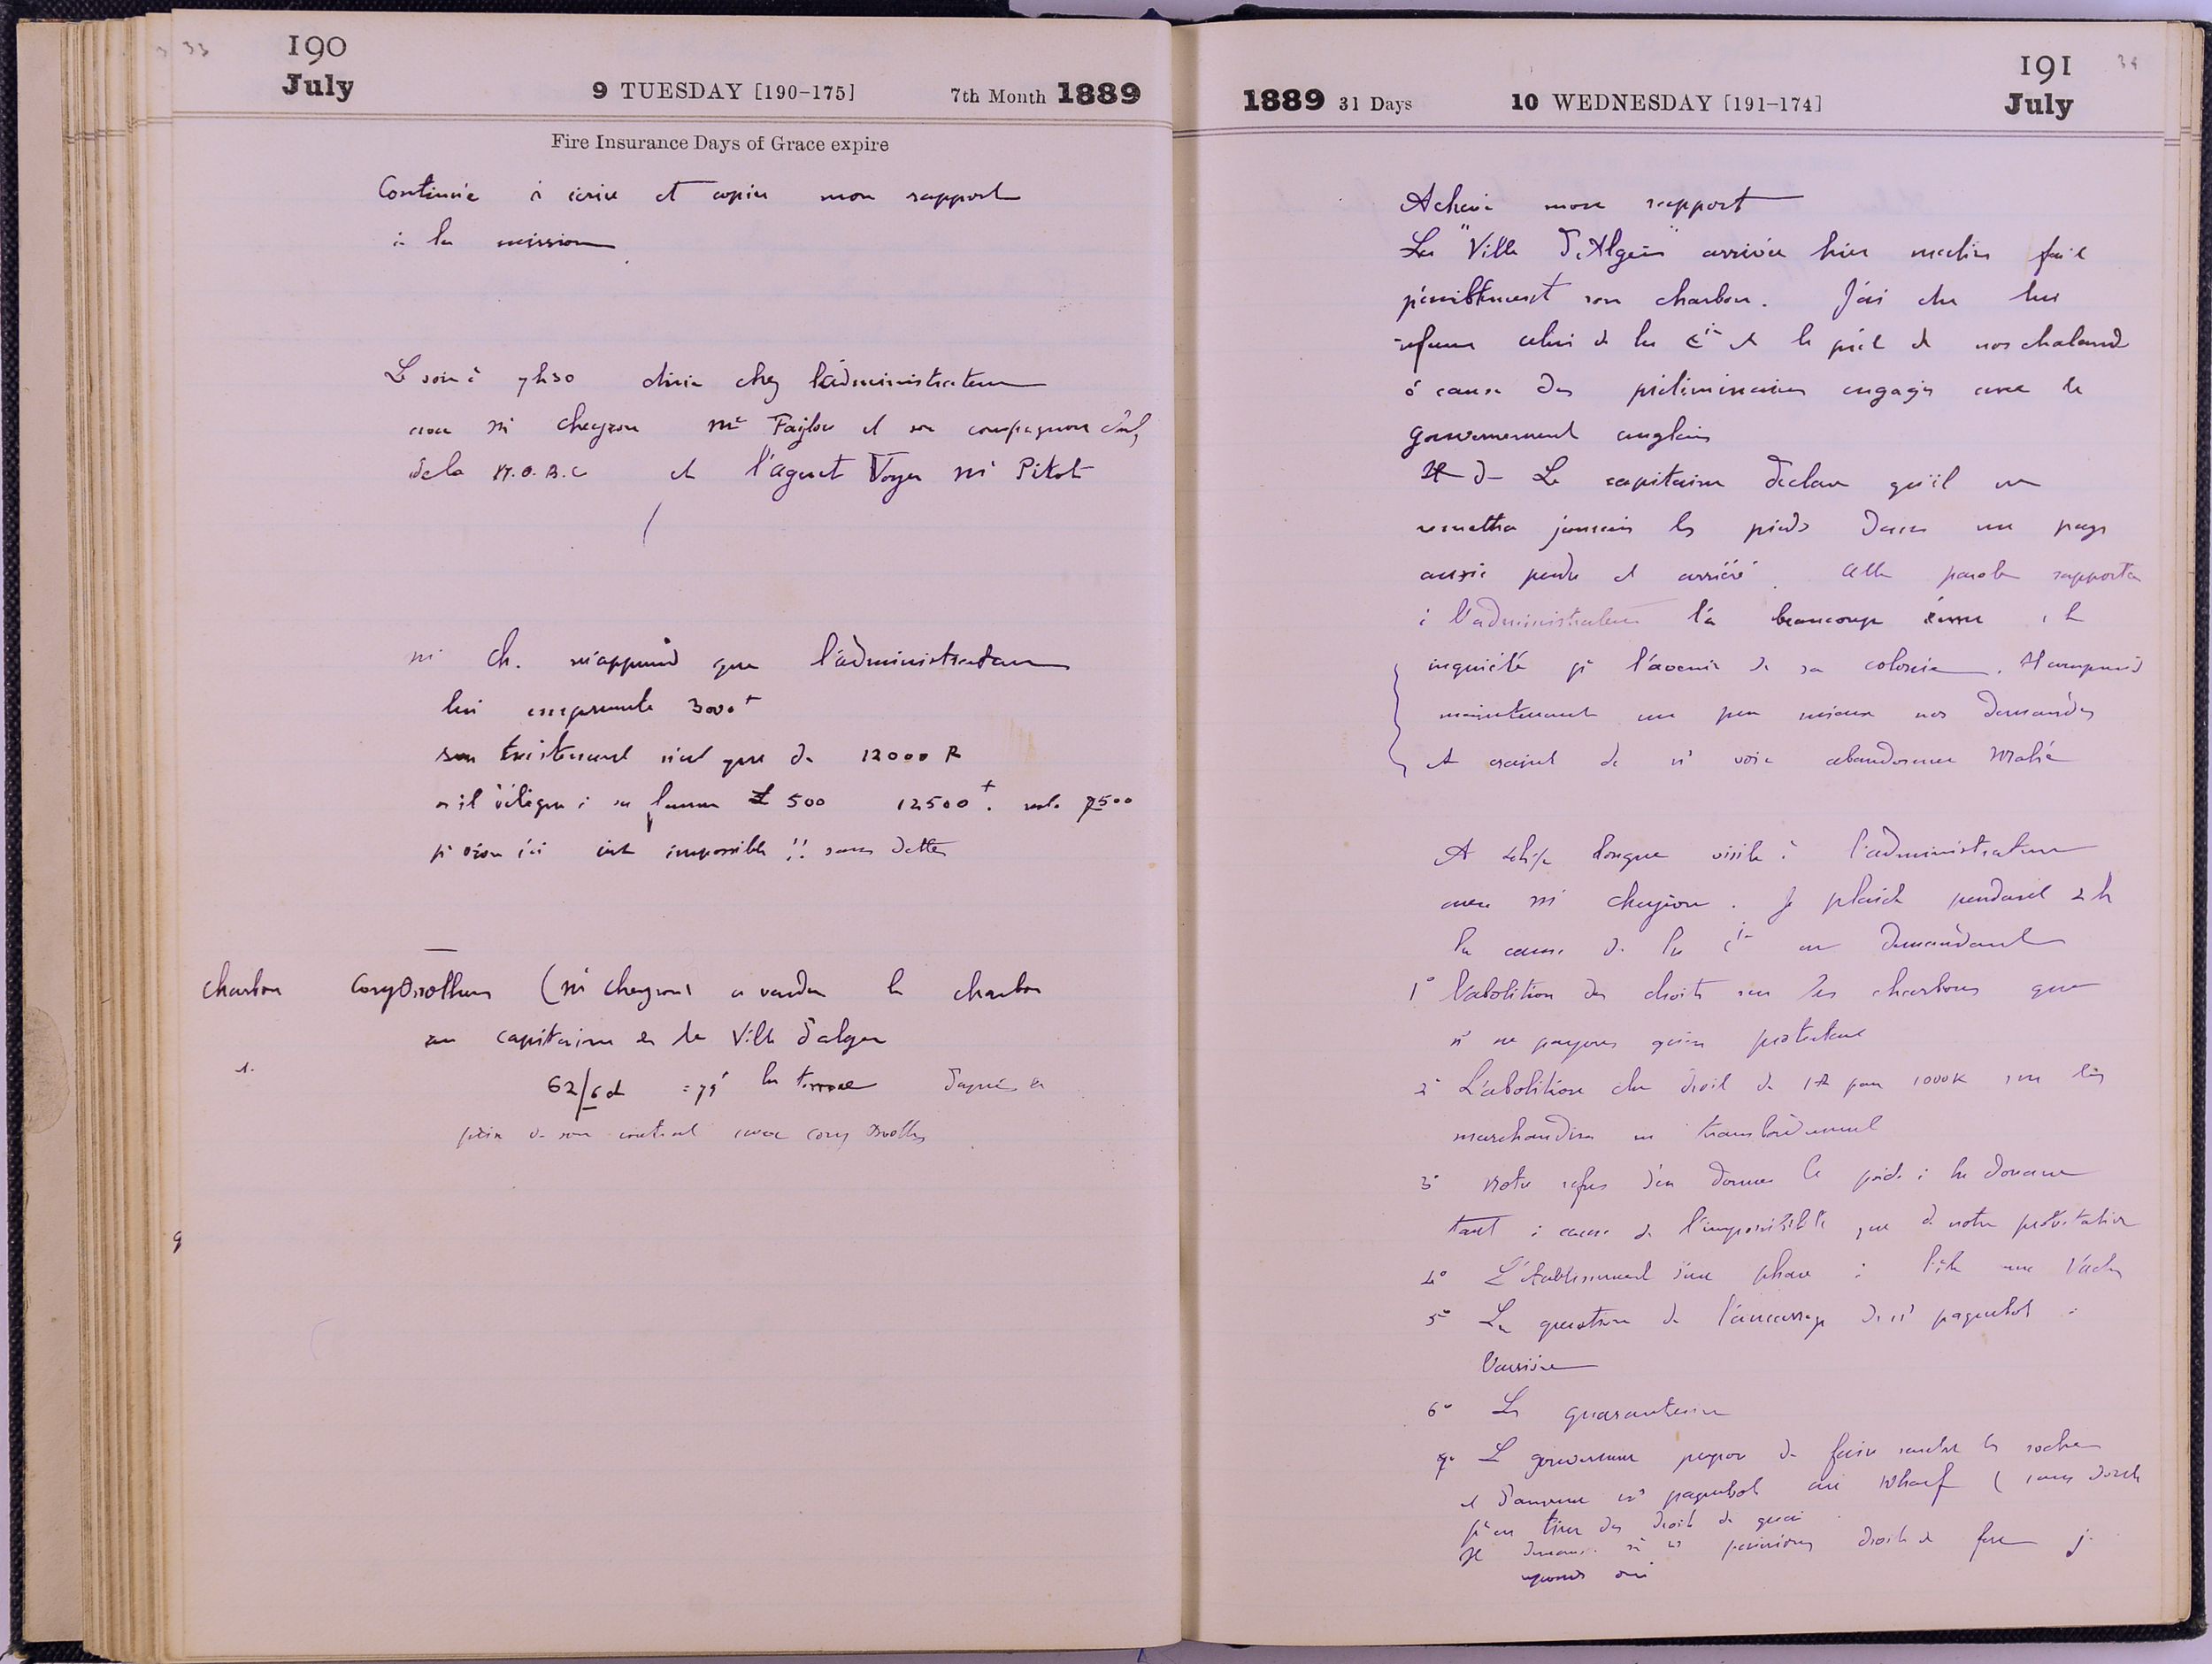 33
190
July
9 TUESDAY [190-175]
7th Month 1889
Fire Insurance Days of Grace expire
Continué à écrire et copier mon rapport
à la mission
Le soir à 7h30 diner chez l'administrateur
avec Mr Cheyron Mr Taylor et son compagnon
de la N.O.B.C et l'agent Voyer Mr Pitot
Mr Ch. m'apprend que l'administrateur
lui emprunte 3000
son traitement n'est que de 12000 R
il délègue à sa femme £ 500 12500 reste 7500
pr vivre ici c'est impossible !! sans dettes
charbon Cory Brothers (Mr Cheyron) a vendu le charbon
au capitaine de la Ville d'alger
62/6d = 79 la tonne d'après le
prix de son contrat avec Cory Brothers
9
1889 31 Days
10 WEDNESDAY [191-174]
191
July
34
Achevé mon rapport
La "Ville d'Alger" arrivée hier matin fait
péniblement son charbon. J'ai du lui
refuser celui de la Cie et le prêt de nos chalands
à cause des préliminaires engagés avec le
gouvernement anglais
Le capitaine déclare qu'il ne
remettra jamais les pieds dans un pays
aussi perdu et arriéré. Cette parole rapportée
à l'administrateur l'a beaucoup ému et
inquiété pr l'avenir de sa colonie. Il comprend
maintenant un peu mieux nos demandes
et craint de se voir abandonner Mahé
A longue visite à l'administrateur
avec Mr Cheyron. Je plaide pendant 2h
la cause de la Cie en demandant
1° l'abolition des droits sur les charbons que
ns ne payons qu'en protestant
2° L'abolition du droit de 1R par 1000K sur les
marchandises en transbordement
3° Notre refus d'en donner le poids à la douane
tant à cause de l'impossibilité que de notre protestation
4° L'établissement d'un phare à l'île aux Vaches
5° La question de l'amarrage de ns paquebots à
l'arrière
6° La quarantaine
7° Le gouverneur propose de faire sauter les roches
et d'amener nos paquebots au Wharf (sans doute
pr en tirer des droits de quai
Il demande si ns paierions droits de feu je
réponds oui